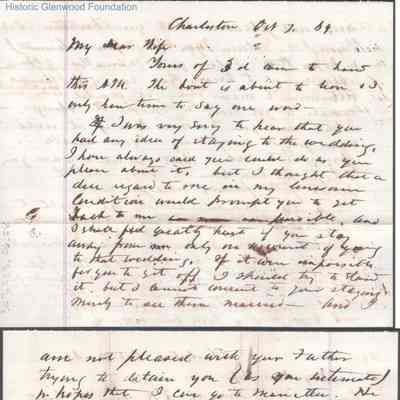 Historic Glenwood Foundation
Charleston Oct 7. 69.
My Dear Wife
Yours of 3d came to hand
this A.M. The boat is about to leave &
only have time to say one word—
I was very sorry to hear that you
had any idea of staying to the wedding.
I have always said you could do as you
please about it, but I thought that a
due regard to me in my lonesome
condition would prompt you to get
back to me as soon as possible, and
I shall feel greatly hurt if you stay
away from me only on account of going
to that wedding. If it were impossible
for you to get off I should try to stand
it, but I cannot consent to your staying
merely to see them married— and I
am not pleased with your Father
trying to detain you (as you intimate)
in hopes that I can go to Marietta. He